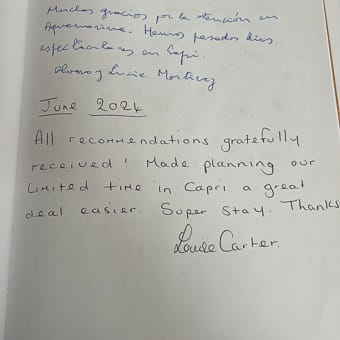 Muchas gracias por la atención en
Aquamarina. Hemos pasado días
espectaculares en Capri.
Alvaro y Lucie Martinez
June 2024
All recommendations gratefully
received! Made planning our
Limited time in Capri a great
deal easier. Super stay. Thanks
Louise Carter.